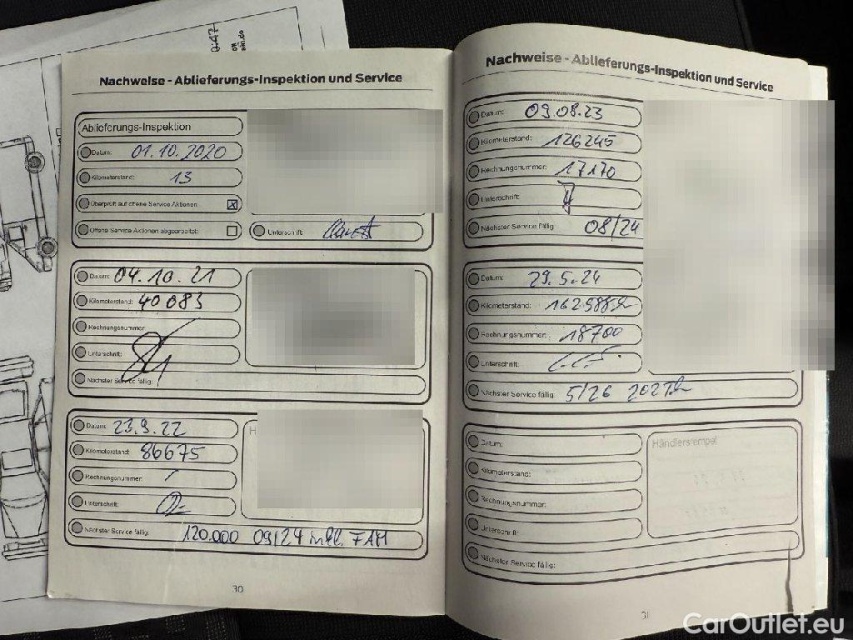 Nachweise - Ablieferungs-Inspektion und Service
Ablieferungs-Inspektion
Datum: 01.10.2020
Kilometerstand: 13
Überprüft auf offene Service Aktionen X
Offene Service Aktionen abgearbeitet:
Unterschrift:
Datum: 04.10.21
Kilometerstand: 40083
Rechnungsnummer:
Unterschrift:
Nächster Service fällig:
Datum: 23.9.22
Kilometerstand: 86675
Rechnungsnummer: /
Unterschrift:
Nächster Service fällig: 120.000 09/24 inkl.
30
Nachweise - Ablieferungs-Inspektion und Service
Datum: 09.08.23
Kilometerstand: 126245
Rechnungsnummer: 17170
Unterschrift:
Nächster Service fällig: 08/24
Datum: 29.5.24
Kilometerstand:
Rechnungsnummer: 18700
Unterschrift:
Nächster Service fällig: 5/26
Datum:
Händlerstempel
Kilometerstand:
Rechnungsnummer:
Unterschrift:
Nächster Service fällig:
31
CarOutlet.eu